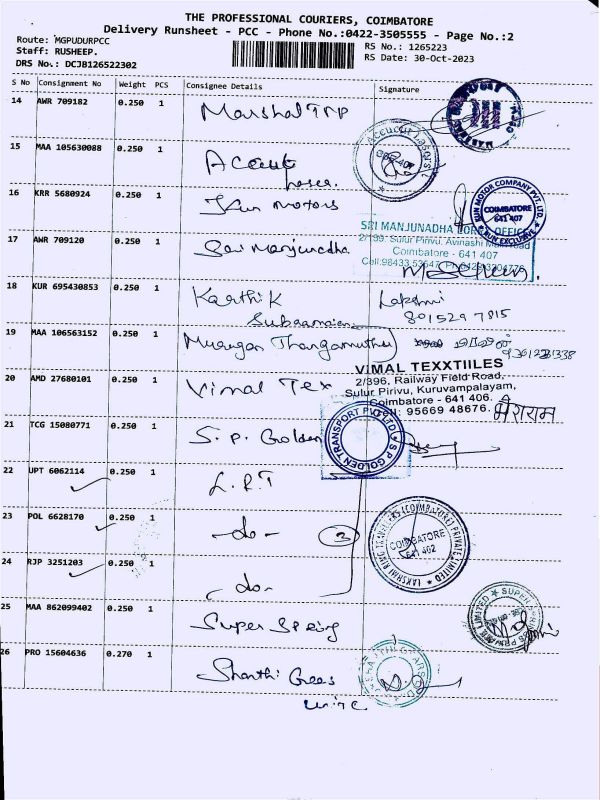 THE PROFESSIONAL COURIERS, COIMBATORE
Delivery Runsheet - PCC - Phone No.:0422-3505555 - Page No.:2
Route: MGPUDURPCC
Staff: RUSHEEP.
DRS No.: DCJB126522302
RS No.: 1265223
RS Date: 30-Oct-2023
S No Consignment No Weight PCS Consignee Details Signature
14 AWR 709182 0.250 1 Marshal TMP
15 MAA 105630088 0.250 1 Accuut
Laser.
Accucut Lasers
641 407
16 KRR 5680924 0.250 1 Kun Motors
KUN MOTOR COMPANY PVT. LTD.
COIMBATORE
641 407
KUN EXCLUSIVE
17 AWR 709120 0.250 1 Sai Manjunadha
SRI MANJUNADHA OFFICE
2/199, Sulur Pirivu, Avinashi Main road
Coimbatore - 641 407
18 KUR 695430853 0.250 1 Karthik
Subramanian
Lakshmi
8015297915
19 MAA 106563152 0.250 1 Murugan Thangamuthu
20 AMD 27680101 0.250 1 Vimal Tex
VIMAL TEXXTIILES
2/396, Railway Field Road,
Sulur Pirivu, Kuruvampalayam,
Coimbatore - 641 406.
95669 48676.
भैराराम
21 TCG 15080771 0.250 1 S. P. Golden
S P GOLDEN TRANSPORT PVT LTD
22 UPT 6062114 0.250 1 L.R.T
23 POL 6628170 0.250 1 -do- 3
LAKSHMI RING TRAVELLERS (COIMBATORE) PRIVATE LIMITED
COIMBATORE
641 402
24 RJP 3251203 0.250 1 -do-
25 MAA 862099402 0.250 1 Super Spring
26 PRO 15604636 0.270 1 Shanthi Gees
unit C